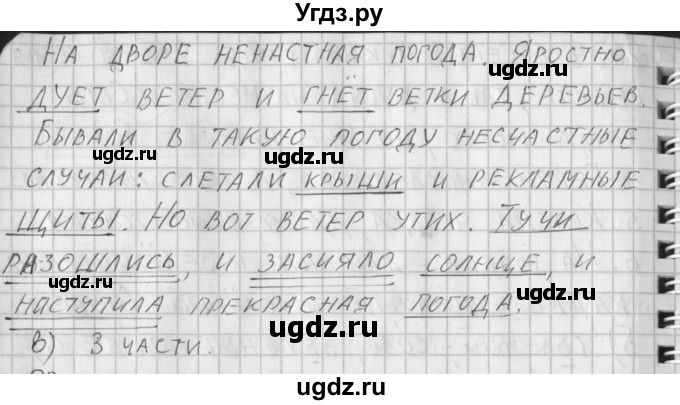 Угдз.ру
На дворе ненастная погода. Яростно
дует ветер и гнёт ветки деревьев.
Бывали в такую погоду несчастные
случаи: слетали крыши и рекламные
щиты. Но вот ветер утих. Тучи
разошлись, и засияло солнце, и
наступила прекрасная погода.
в) 3 части.
ugdz.ru
ugdz.ru
ugdz.ru
ugdz.ru
ugdz.ru
ugdz.ru
ugdz.ru
ugdz.ru
ugdz.ru
ugdz.ru